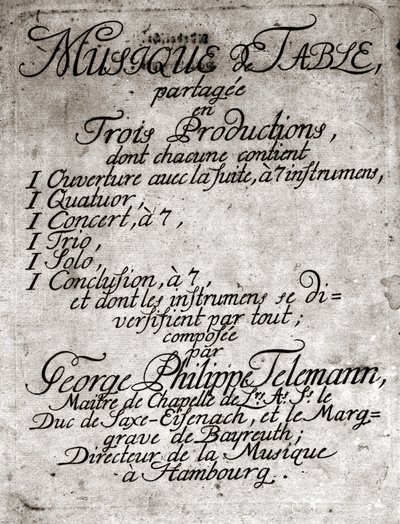 MUSIQUE de TABLE,
partagée
en
Trois Productions,
dont chacune contient
I Ouverture avec la suite, à 7 instrumens,
I Quatuor,
I Concert, à 7,
I Trio,
I Solo,
I Conclusion, à 7,
et dont les instrumens se di=
versifient par tout;
composée
par
George Philippe Telemann,
Maitre de Chapelle de L. A. S. le
Duc de Saxe-Eisenach, et le Marg=
grave de Bayreuth;
Directeur de la Musique
à Hambourg.